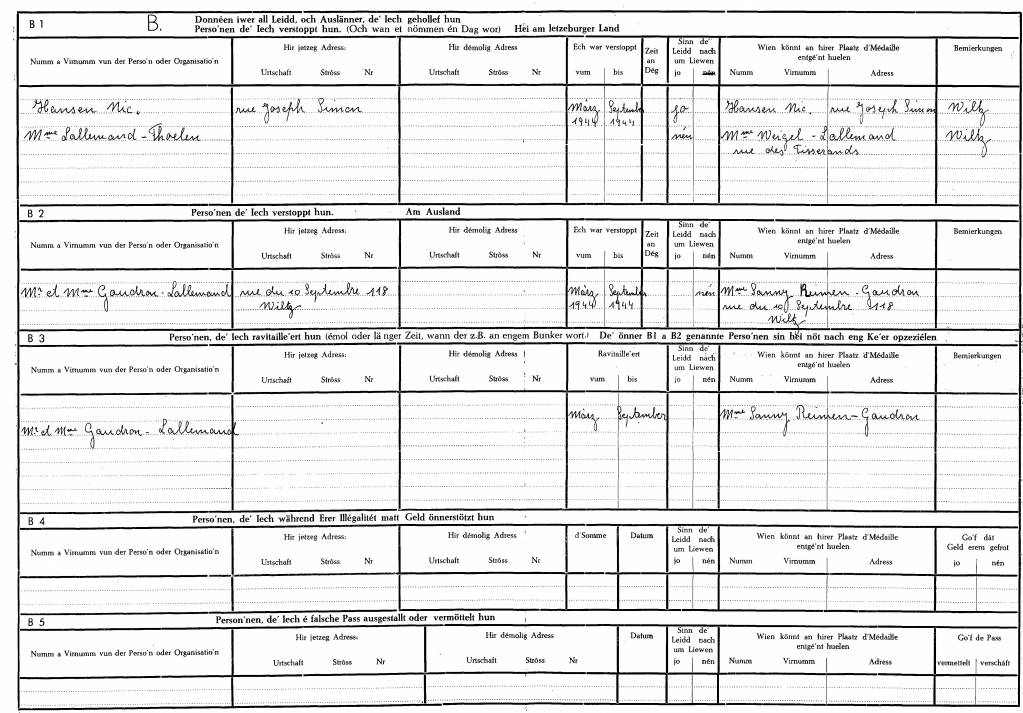 B 1 B. Donnéen iwer all Leidd, och Auslänner, de' Iech gehollef hun
Perso'nen de' Iech verstoppt hun. (Och wan et nömmen én Dag wor) Hei am letzeburger Land
Numm a Virnumm vun der Perso'n oder Organisatio'n
Hir jetzeg Adress:
Urtschaft Ströss Nr
Hir démolig Adress
Urtschaft Ströss Nr
Ech war verstoppt
vum bis
Zeit
an
Dég
Sinn de'
Leidd nach
um Liewen
jo nén
Wien könnt an hirer Plaatz d'Médaille
entgé'nt huelen
Numm Virnumm Adress
Bemierkungen
Hansen Nic. rue Joseph Simon März 1944 September 1944 jo Hansen Nic. rue Joseph Simon Wiltz
Mme Lallemand - Thoelen nén Mme Weigel - Lallemand Wiltz
rue des Tisserands
B 2 Perso'nen de' Iech verstoppt hun. Am Ausland
Numm a Virnumm vun der Perso'n oder Organisatio'n
Hir jetzeg Adress:
Urtschaft Ströss Nr
Hir démolig Adress
Urtschaft Ströss Nr
Ech war verstoppt
vum bis
Zeit
an
Dég
Sinn de'
Leidd nach
um Liewen
jo nén
Wien könnt an hirer Plaatz d'Médaille
entgé'nt huelen
Numm Virnumm Adress
Bemierkungen
Mr et Mme Gaudron - Lallemand rue du 10 Septembre 118 März September nén Mme Sanny Reimen - Gaudron
Wiltz 1944 1944 rue du 10 Septembre 118
Wiltz
B 3 Perso'nen, de' Iech ravitaille'ert hun (émol oder länger Zeit, wann der z.B. an engem Bunker wort.) De' önner B1 a B2 genannte Perso'nen sin hei nöt nach eng Ke'er opzeziélen
Numm a Virnumm vun der Perso'n oder Organisatio'n
Hir jetzeg Adress:
Urtschaft Ströss Nr
Hir démolig Adress
Urtschaft Ströss Nr
Ravitaille'ert
vum bis
Sinn de'
Leidd nach
um Liewen
jo nén
Wien könnt an hirer Plaatz d'Médaille
entgé'nt huelen
Numm Virnumm Adress
Bemierkungen
März September Mme Sanny Reimen - Gaudron
Mr et Mme Gaudron - Lallemand
B 4 Perso'nen, de' Iech während Erer Illégalitét matt Geld önnerstötzt hun
Numm a Virnumm vun der Perso'n oder Organisatio'n
Hir jetzeg Adress:
Urtschaft Ströss Nr
Hir démolig Adress
Urtschaft Ströss Nr
d'Somme Datum
Sinn de'
Leidd nach
um Liewen
jo nén
Wien könnt an hirer Plaatz d'Médaille
entgé'nt huelen
Numm Virnumm Adress
Go'f dât
Geld erem gefrot
jo nén
B 5 Person'nen, de' Iech é falsche Pass ausgestallt oder vermöttelt hun
Numm a Virnumm vun der Perso'n oder Organisatio'n
Hir jetzeg Adress:
Urtschaft Ströss Nr
Hir démolig Adress
Urtschaft Ströss Nr
Datum
Sinn de'
Leidd nach
um Liewen
jo nén
Wien könnt an hirer Plaatz d'Médaille
entgé'nt huelen
Numm Virnumm Adress
Go'f de Pass
vermettelt verschâft